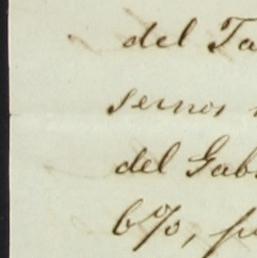 del Ta
sernos
del Gab
6%, p